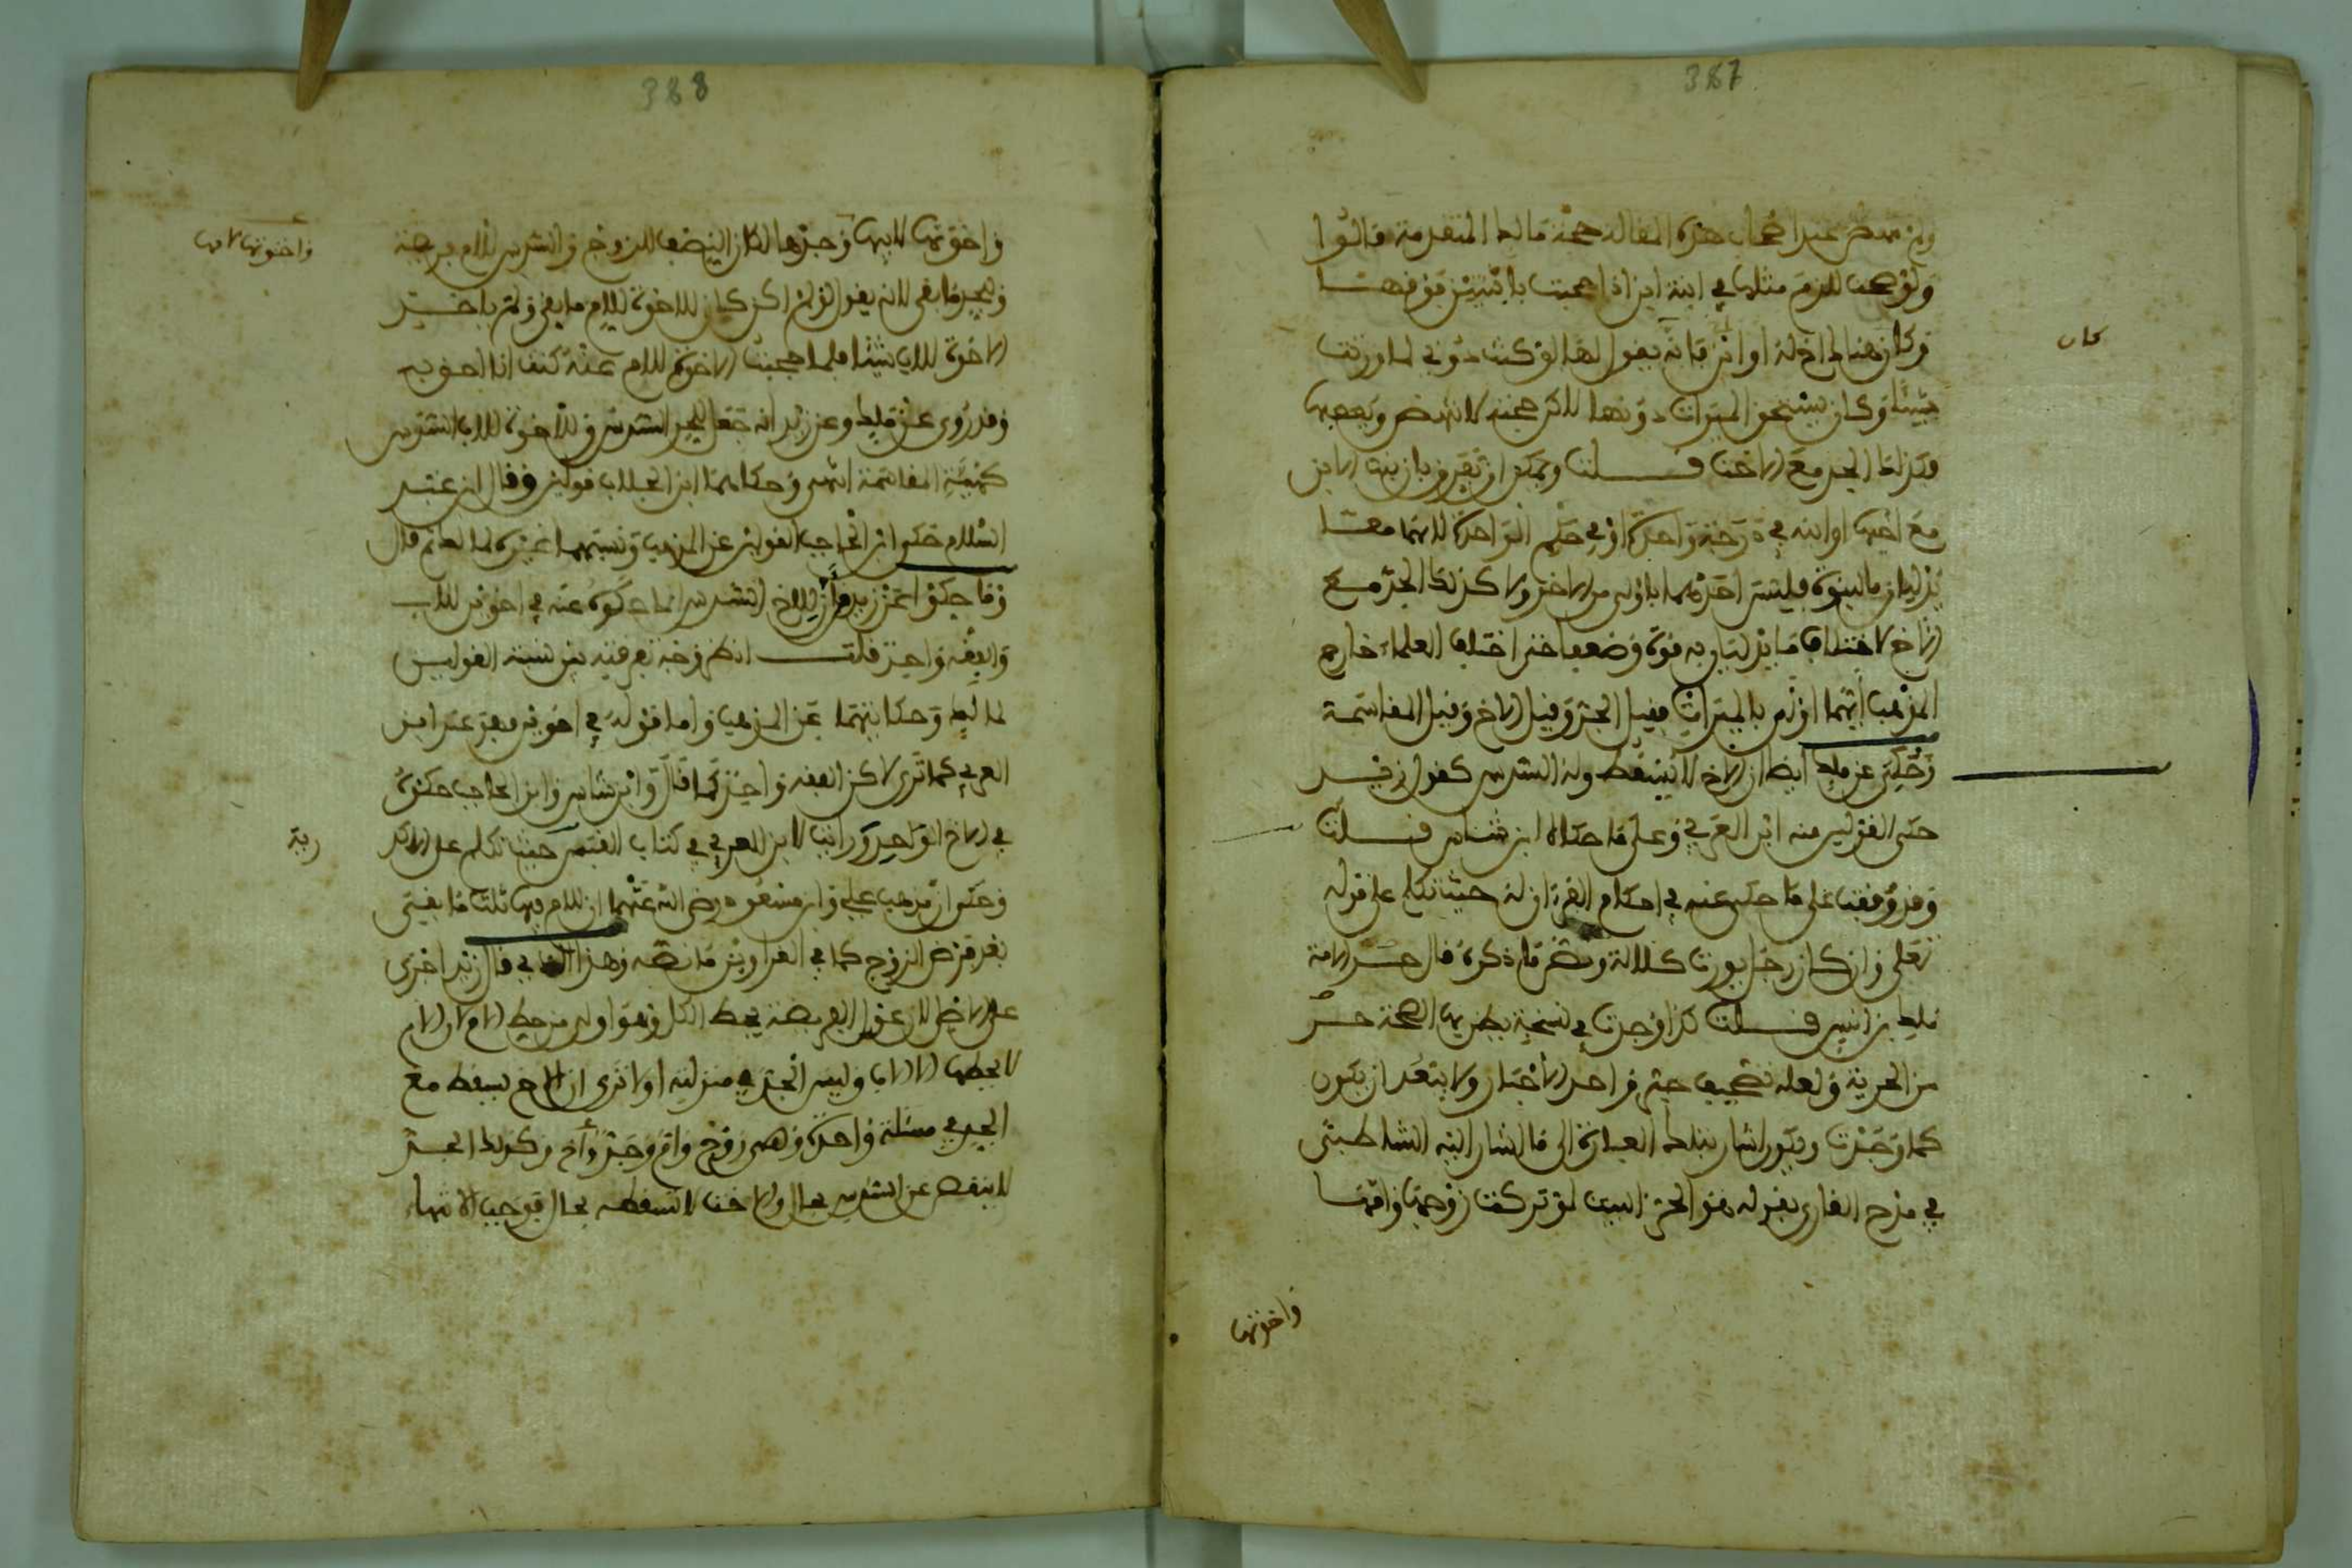 387
عند اصحاب هذه المقالة حجة مالك المتقدمة قالوا
ولو صحت للزم مثلها في ابنة ابن اذا حجبت بابنتين فوقهما
وكان هناك اخ لها او ابن فانه يقول لها لو كنت دوني لما ورثت
كان
شيئا وكان يستحق الميراث دونها
وكذلك الجد مع الاخت قلت ويمكن ان يفرق بان بنت الابن
مع اخيها او ابنه في درجة واحدة او في حكم الواحدة لانهما معا
يدليان بالبنوة فليس احدهما باولى من الاخر ولا كذلك الجد مع
الاخ لاختلاف ما يدليان به قوة وضعفا حتى اختلف العلماء خارج
المذهب ايهما اولى بالميراث فقيل الجد وقيل الاخ وقيل المقاسمة
وحكي عن مالك ايضا ان الاخ لا يسقط وله السدس كقول زيد
حكى القولين عنه ابن العربي وعلى ما حكاه ابن شاس قلت
وقد وقفت على ما حكى عنه في احكام القرءان له حيث تكلم على قوله
تعلى وان كان رجل يورث كلالة ونص ما ذكره قال حبر الامة
ملك بن انس قلت كذا وجدت في نسخة يظن بها الصحة حبر
من الحرية ولعله تصحيف حبر فرد الاحبار ولا يبعد ان يكون
كما وجدت ويكون اشار بتلك العبارة الى ما اشار اليه الشاطبي
في مدح القارئ بقوله هو الحر البيت لو تركت زوجها وامها
واخوتها
388
واخوتها لابيها وجدها لكان النصف للزوج والسدس للام فريضة
واخوتها لامها
وللجد ما بقي لانه يقول لو لم اكن كان للاخوة للام ما بقي ولم ياخذ
الاخوة للاب شيئا فلما حجبت الاخوة للام عنه كنت انا احق به
وقد روي عن ملك وعن زيد انه جعل للجد السدس وللاخوة للاب السدس
كهيئة المقاسمة انتهى وحكاهما ابن الجلاب قولين وقال ابن عبد
السلام حكى ابن الحاجب القولين عن المذهب ونسبهما غيره لمالك ثم قال
وما حكوا عن زيد من ان للاخ السدس انما حكوه عنه في اخوين للاب
والفقه واحد قلت انظر وجه تفرقته بين نسبة القولين
لمالك وحكايتهما عن المذهب واما قوله في اخوين فهو عند ابن
العربي كما ترى لاكن الفقه واحد كما قال وابن شاس وابن الحاجب حكوه
في الاخ الواحد ورايت لابن العربي في كتاب القبس حيث تكلم على الاكد
رية
وحكى ان مذهب علي وابن مسعود رضي الله عنهما ان للام فيها ثلث ما بقي
بعد فرض الزوج كما في الغراوين ما نصه وهذا الذي قال زيد اخرى
على الاصل لان عول الفريضة يحط الكل وهو اولى من حط الام لان الام
لا يحطها الا الاب وليس الجد في منزلته اولا ترى ان الاخ يسقط مع
الجد في مسئلة واحدة وهي زوج وام وجد واخ وكذلك الجد
لا ينقص عن السدس بحال والاخت لا تسقط بحال فوجب الانتهاء